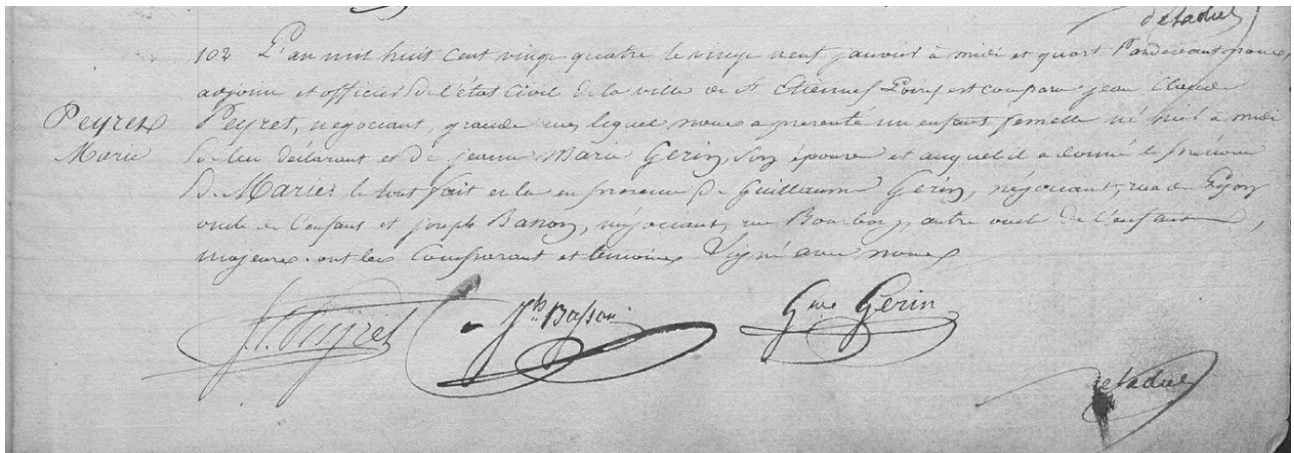 102 L'an mil huit cent vingt quatre le vingt neuf janvier à midi et quart Pardevant nous,
adjoint et officier de l'état civil de la ville de St Etienne (Loire) est comparu jean Claude
Peyret
Marie
Peyret, négociant, grande rue, lequel nous a présenté un enfant femelle né hier à midi
de lui déclarant et de jeanne Marie Gerin, son épouse et auquel il a donné le prénom
de Marie, le tout fait en présence de Guillaume Gerin, négociant, rue de Lyon
oncle de l'enfant et joseph Basson, négociant, rue Bourbon, autre oncle de l'enfant,
majeurs. ont les Comparant et témoins Signé avec nous
J. C. Peyret
Jh Basson
Gme Gerin